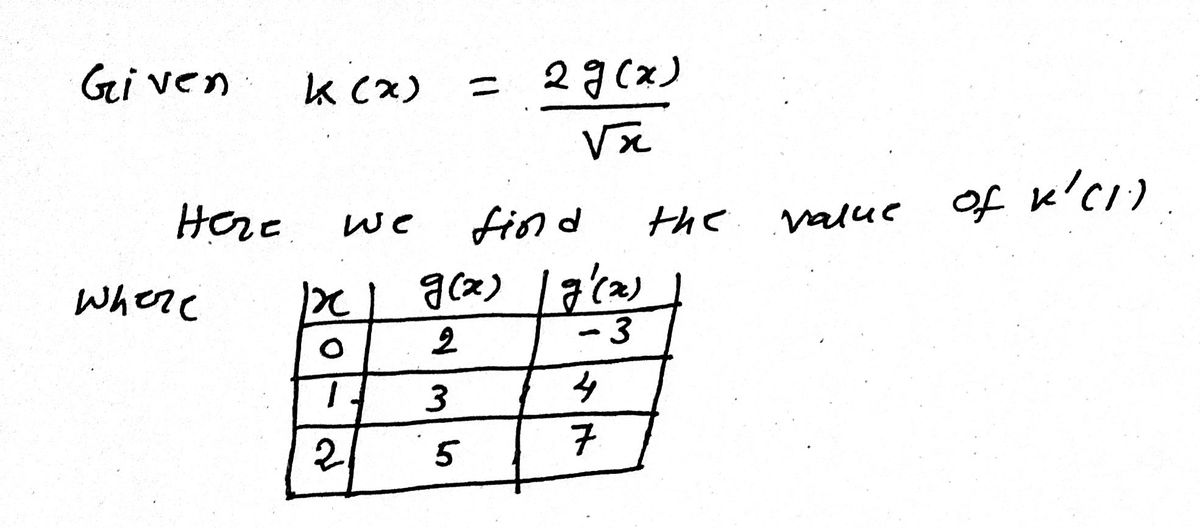 Given k(x) = 2g(x)
√x
Here we find the value of k'(1).
where x g(x) g'(x)
0 2 -3
1 3 4
2 5 7